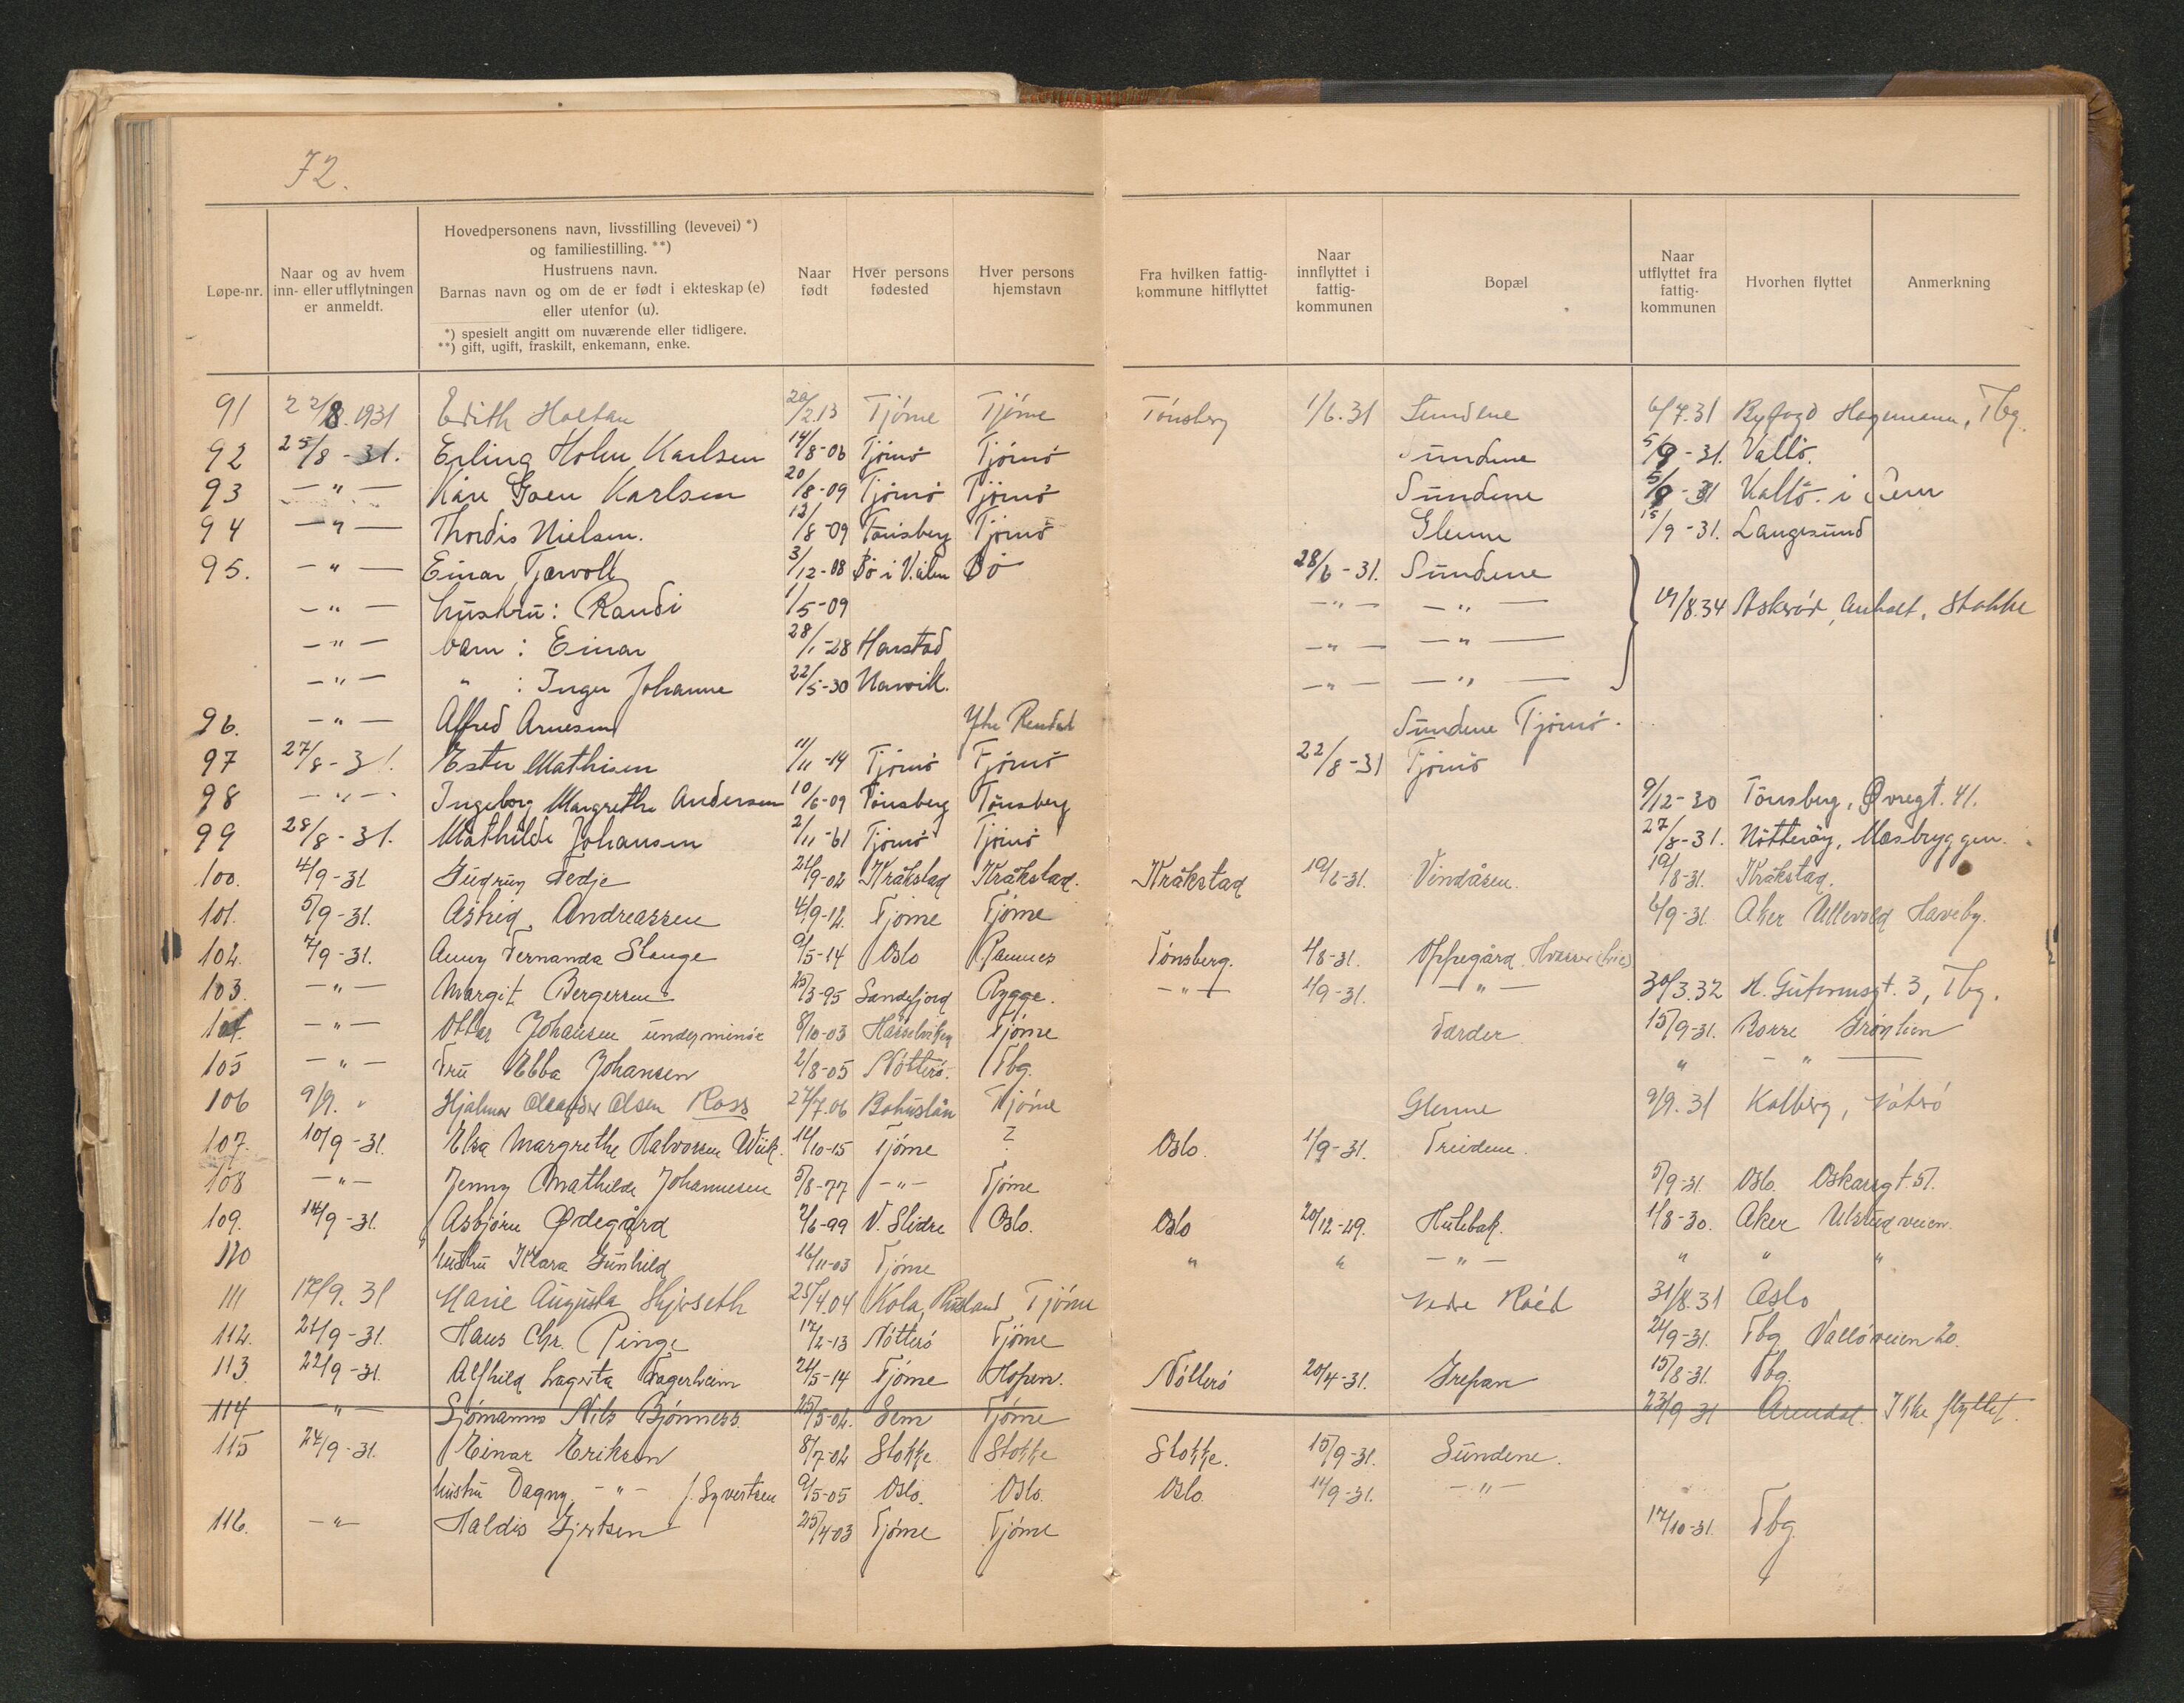 72.
Løpe-nr. | Naar og av hvem inn- eller utflytningen er anmeldt. | Hovedpersonens navn, livsstilling (levevei) *) og familiestilling. **) Hustruens navn. Barnas navn og om de er født i ekteskap (e) eller utenfor (u). *) spesielt angitt om nuværende eller tidligere. **) gift, ugift, fraskilt, enkemann, enke. | Naar født | Hver persons fødested | Hver persons hjemstavn | Fra hvilken fattig-kommune hitflyttet | Naar innflyttet i fattig-kommunen | Bopæl | Naar utflyttet fra fattig-kommunen | Hvorhen flyttet | Anmerkning
91 22/8.1931 Edith Holtan 20/2.13 Tjöme Tjöme Tönsberg 1/6.31 Sundene 6/7.31 Byfogd Hagemann, Tbg.
92 25/8-31. Erling Holm Karlsen 14/8-06 Tjömö Tjömö Sundene 5/9-31. Vallö.
93 —"— Kåre Karlsen 20/8-09 Tjömö Tjömö Sundene 5/9-31 Vallö i Sem
94 —"— Thordis Nielsen. 12/8-09 Tönsberg Tjömö Glenne 15/9-31. Langesund
95. —"— Einar Tjervoll 3/12-08 Bö i V.ålen Bö 28/6-31. Sundene
—"— hustru: Randi 1/5-09 —"— —"— 19/8.34 Askeröd, Anholt, Stokke
—"— barn: Einar 28/1-28 Harstad —"— —"—
—"— " : Inger Johanne 22/5-30 Narvik. —"— —"—
96. —"— Alfred Arnesen Ytre Rendal Sundene Tjömö.
97 27/8-31. Ester Mathisen 11/11-14 Tjömö Tjömö 22/8-31 Tjömö
98 —"— Ingeborg Margrethe Andersen 10/6-09 Tönsberg Tönsberg 9/12-30 Tönsberg, Øvregt. 41.
99 28/8-31. Mathilde Johansen 2/11-61 Tjömö Tjömö 27/8-31. Nötteröy, Mæsbryggen.
100. 4/9-31 Gudrun Tedje 21/9-02 Kråkstad Kråkstad. Kråkstad 19/6-31. Vindåsen. 19/8-31. Kråkstad.
101. 5/9-31. Astrid Andreassen 4/9-12. Tjöme Tjöme 6/9-31. Aker Ullevold Haveby.
102. 7/9-31. Anny Fernanda Slange 9/5-14 Oslo Ramnes Tönsberg. 1/8-31. Oppegård.
103. —"— Margit Bergersen 25/3-95 Sandefjord Rygge. —"— 1/9-31. —"— 30/3.32 H. Gutormsgt. 3, Tbg.
104. —"— Ottar Johansen 8/10-03 Tjöme Færder 15/9-31. Borre
105 —"— Fru Ebba Johansen 2/8-05 Nötterö. Tbg. " —"—
106 9/9. " Hjalmar Olsen Ross 27/7.06 Bohuslän Tjöme Glenne 9/9.31 Kalberg,
107. 10/9-31. Elsa Margrethe Halvorsen Wiik. 14/10-15 Tjöme ? Oslo. 1/9-31.
108 —"— Jenny Mathilde Johannesen 5/8-77 —"— Tjöme 5/9-31. Oslo. Oskarsgt. 51.
109. 14/9-31. Asbjörn Ødegård 2/6-99 V. Slidre Oslo. Oslo 20/12-29. Hulebak. 1/8-30. Aker Ulsrudveien.
110 hustru Klara Gunhild 16/11-03 Tjöme " " —"— " " "
111 17/9.31 Marie Augusta Skjerseth 25/4.04 Kola, Russland Tjöme Nedre Roed 31/8.31 Oslo
112. 21/9-31. Hans Chr. Ringe 17/2-13 Nötterö Tjöme 21/9-31. Tbg. Vallöveien 20.
113. 22/9-31. Alfhild Lagerta Fagerheim 21/5-14 Tjöme Hopen. Nötterö 20/4-31. Grepan 15/8-31. Tbg.
114 —"— Sjömann Nils Bjönness. 25/5-02. Sem Tjöme 23/9 31 Arendal. Ikke flyttet.
115 24/9-31. Einar Eriksen 8/7-02 Stokke. Stokke Stokke. 15/9-31. Sundene.
hustru Dagny —"— f. Syvertsen 9/5-05 Oslo. Oslo. Oslo. 14/9-31. —"—
116. —"— Haldis Gjertsen 25/4-03 Tjöme Tjöme 17/10-31. Tbg.